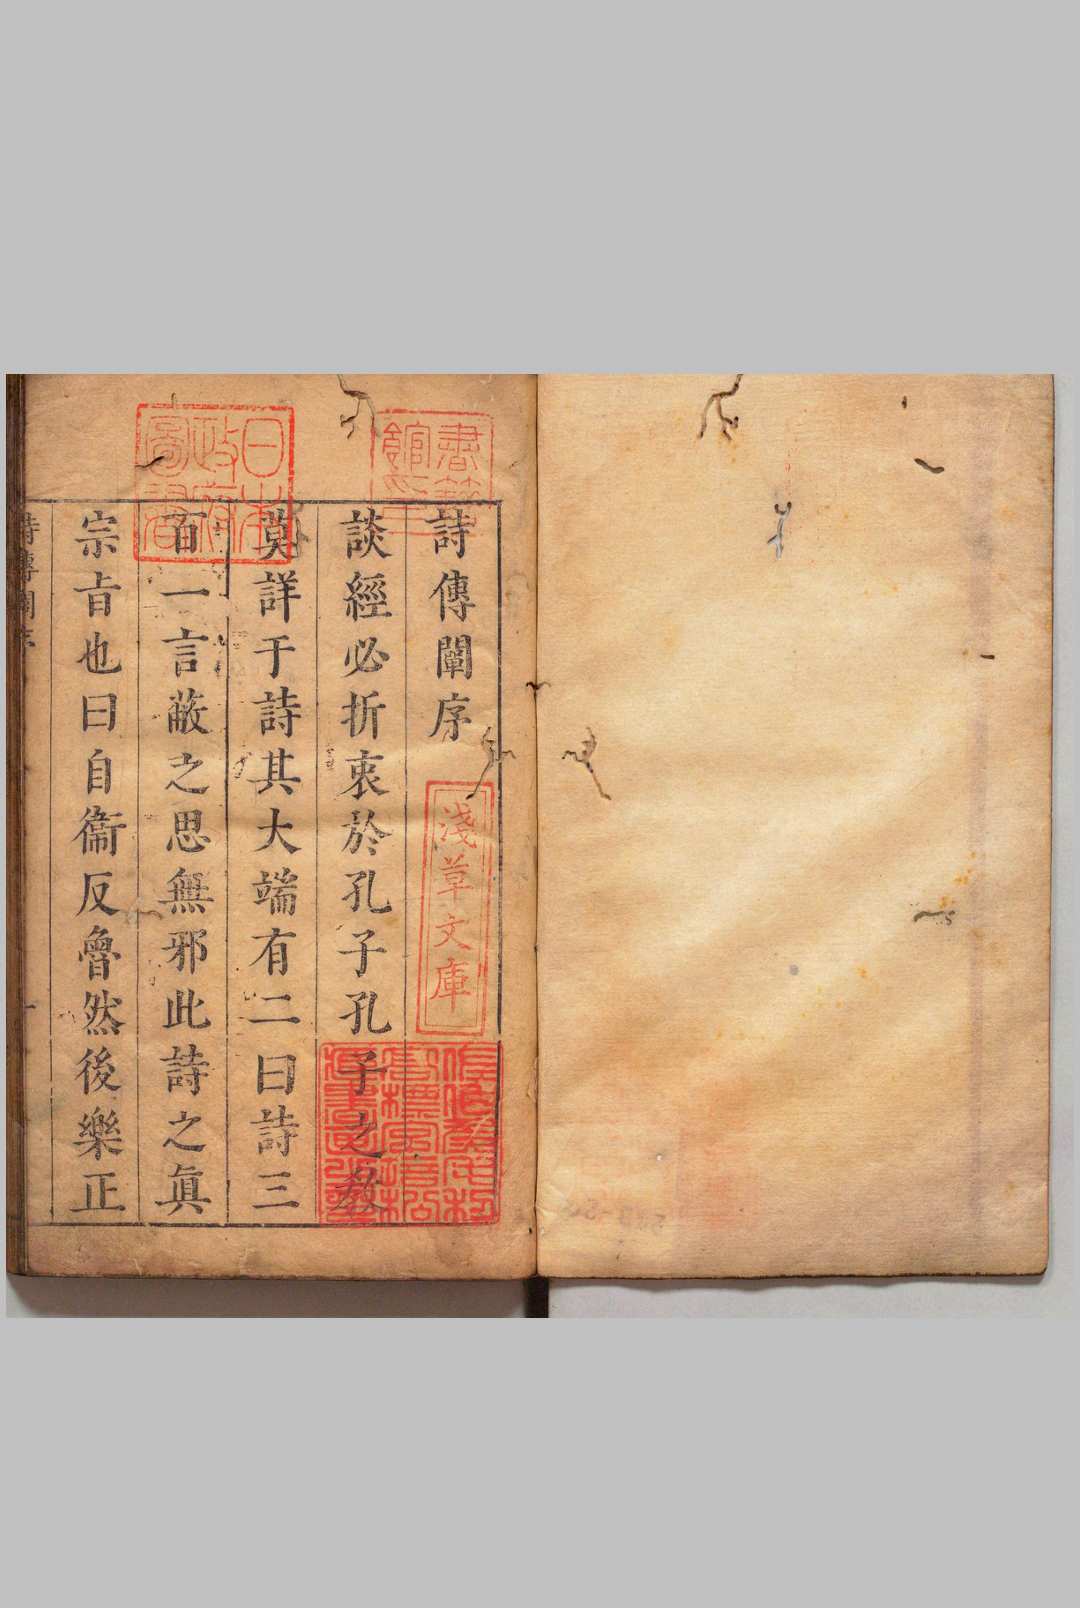 詩傳闡序
談經必折衷於孔子孔子之教
莫詳于詩其大端有二曰詩三
百一言蔽之思無邪此詩之眞
宗㫖也曰自衞反魯然後樂正
詩傳闡序
一
日本
政府
圖書
書籍
館印
淺草文庫